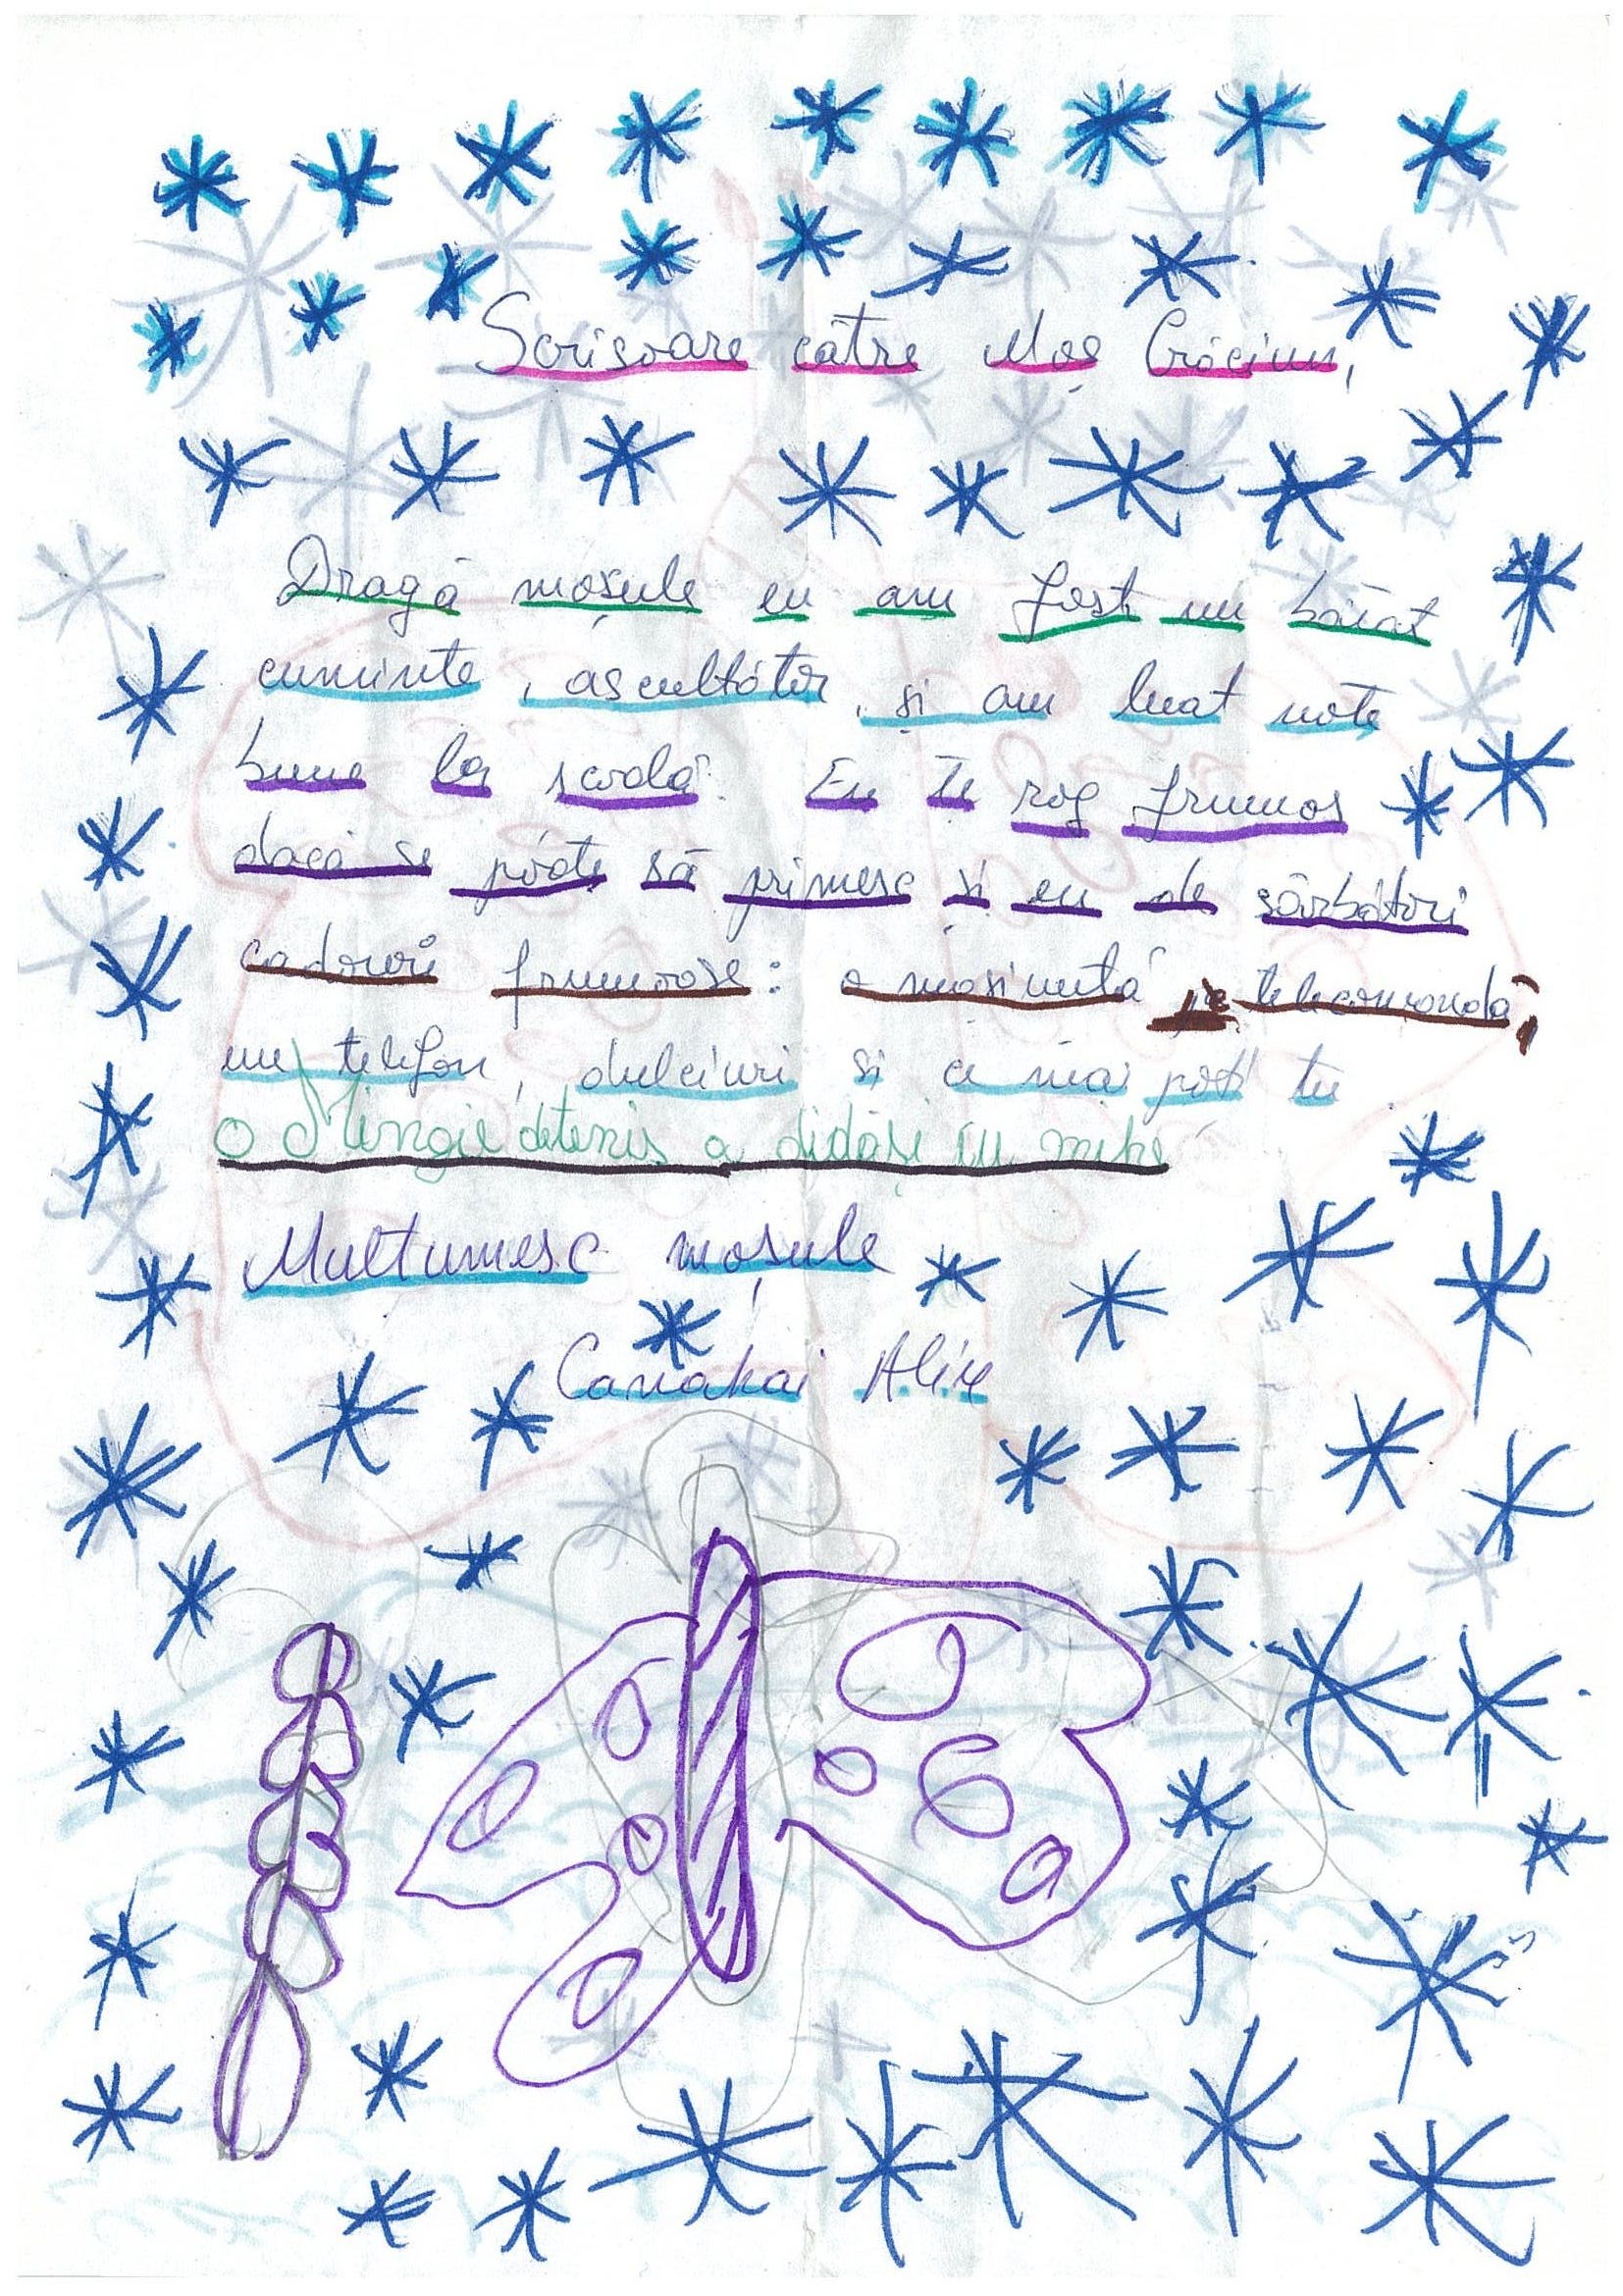 Scrisoare către Moș Crăciun,
Dragă moșule eu am fost un băiat
cuminte, ascultător, și am luat note
bune la școală. Eu te rog frumos
dacă se poate să primesc și eu de sărbători
cadouri frumoase: o mașinuță pe telecomandă,
un telefon, dulciuri si ce mai poți tu
o Mingie detenis
Multumesc moșule
Canakai